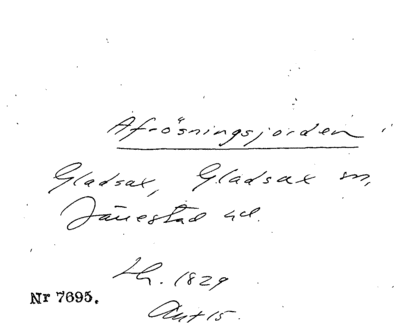 Afrösningsjorden i
Gladsax, Gladsax sn,
Järrestad hd.
Lh. 1829
Akt 15.
Nr 7695.